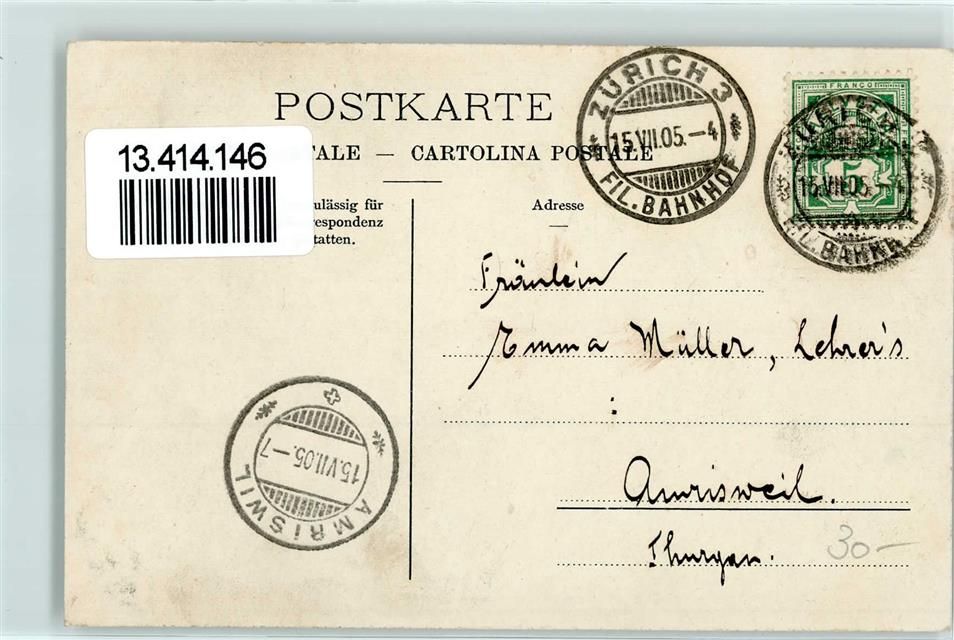 POSTKARTE
13.414.146
TALE — CARTOLINA POSTALE
ulässig für
respondenz
tatten.
Adresse
ZÜRICH 3
15.VII.05.-4
FIL. BAHNHOF
FRANCO
5
15.VII.05.-4
FIL. BAHNH
Fräulein
Emma Müller, Lehrer's
Amrisweil.
Thurgau.
30—
15.VII.05.-7
AMRISWIL